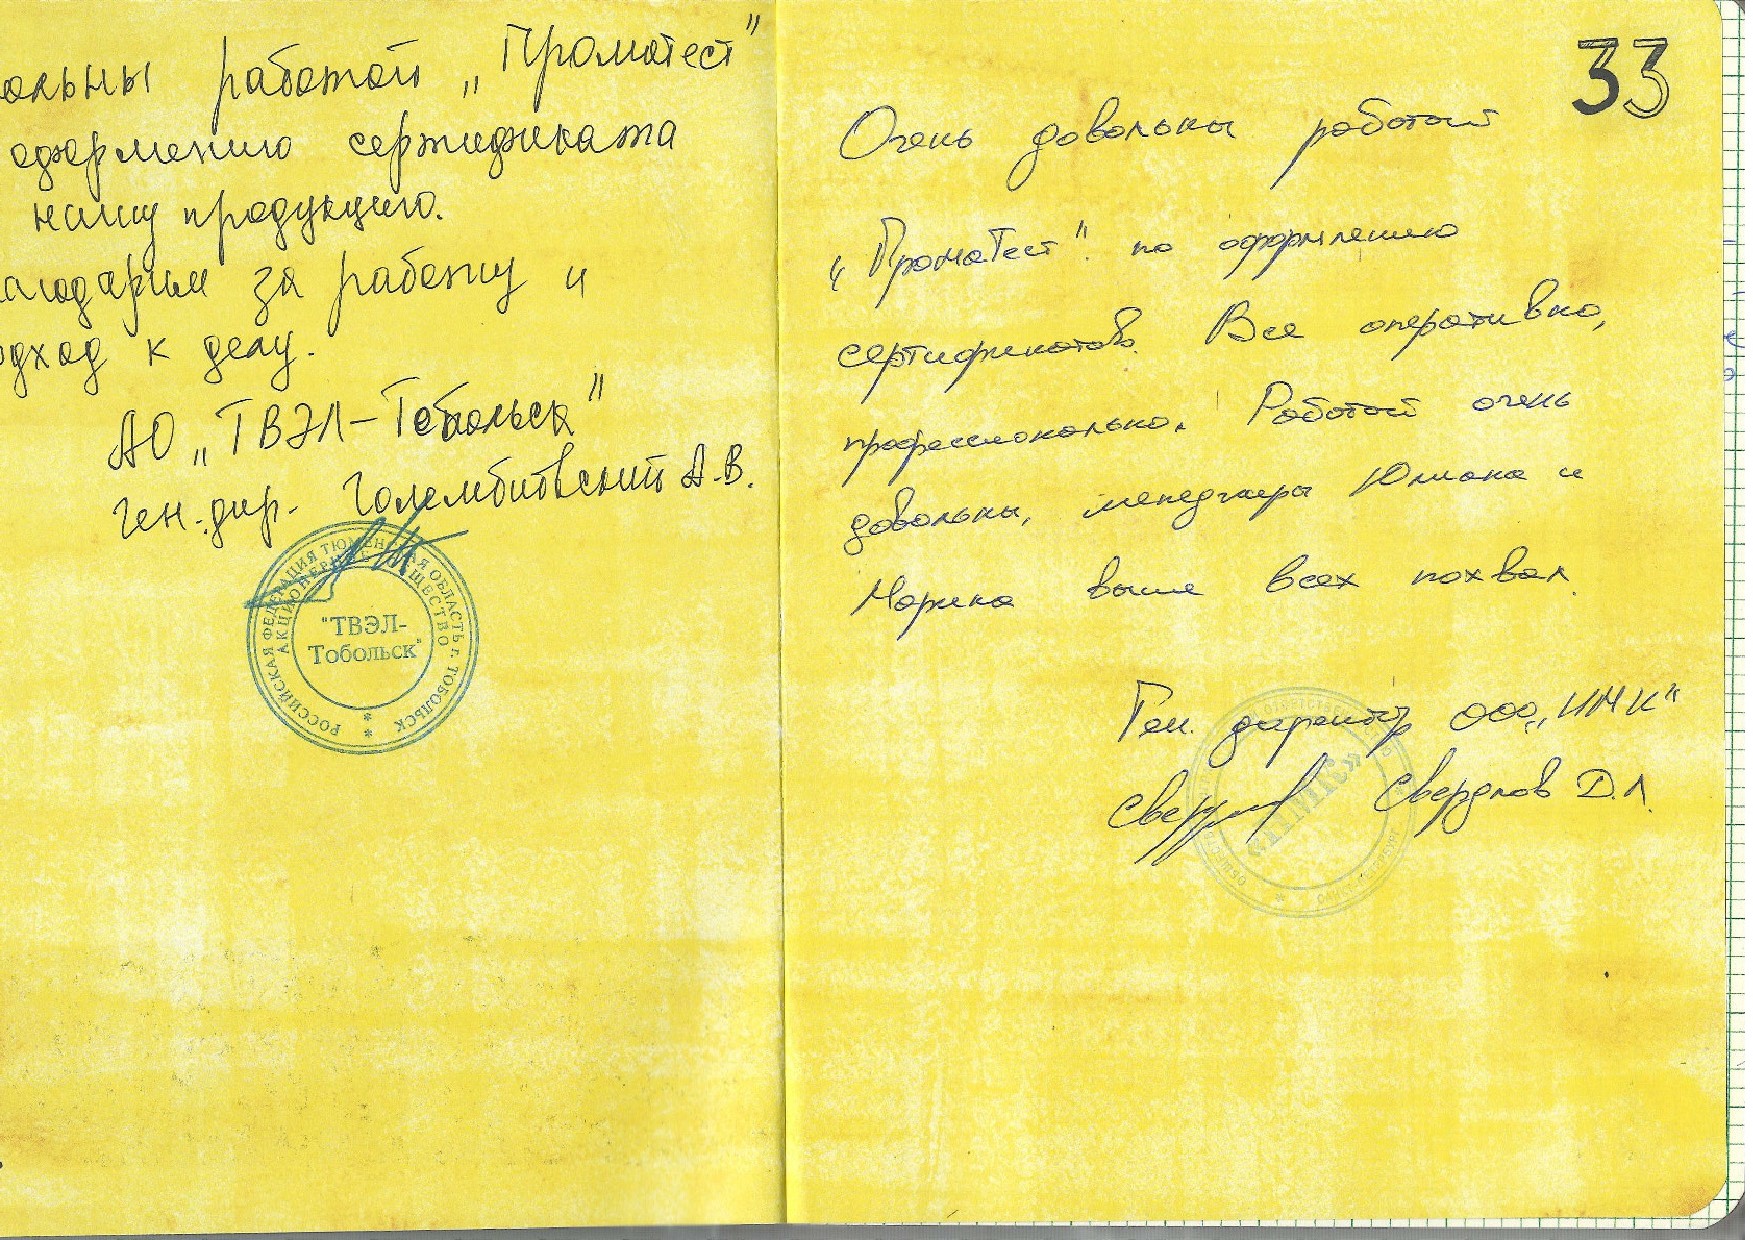 ольны работой „Промотест"
оформлению сертификата
нашу продукцию.
агодарим за работу и
одход к делу.
АО „ТВЭЛ-Тобольск"
ген.дир. Голембитовский А.В.
РОССИЙСКАЯ ФЕДЕРАЦИЯ ТЮМЕНСКАЯ ОБЛАСТЬ г. ТОБОЛЬСК
АКЦИОНЕРНОЕ ОБЩЕСТВО
"ТВЭЛ-
Тобольск"
33
Очень довольны работой
„ПромаТест". по оформлению
сертификатов. Все оперативно,
профессионально. Работой очень
довольны, менеджеры Юлиана и
Марина выше всех похвал.
Ген. директор ООО „ИМК"
Свердлов Д.Л.
«ИМК»